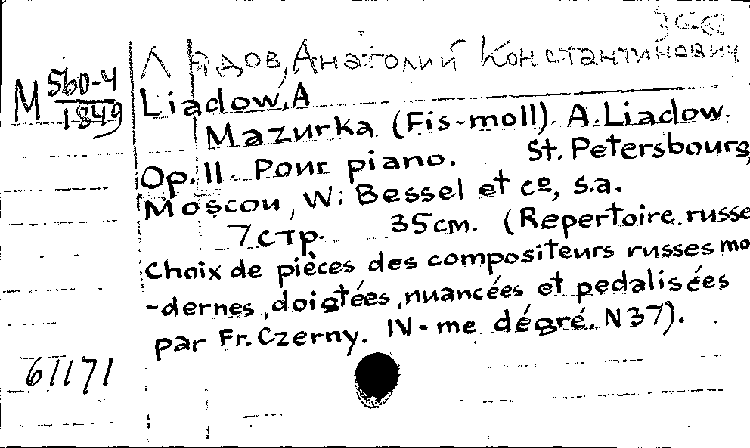 Лядов, Анатолий Константинович
M 560-4
1849
Liadow, A
Mazurka (Fis-moll). A. Liadow.
Op. 11. Pour piano. St. Petersbourg,
Moscou, W. Bessel et co, s.a.
7 стр. 35 cm. (Repertoire russe
Choix de pièces des compositeurs russes mo
-dernes, doigtées, nuancées et pedalisées
par Fr. Czerny. IV-me dégré. N 37).
61171